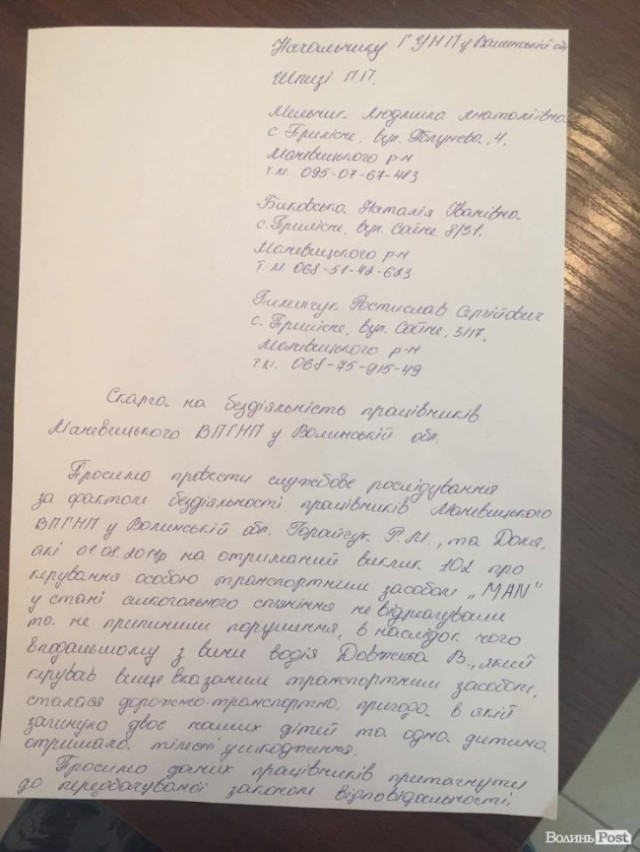 Начальнику ГУНП у Волинській обл
Шпизі П.П.
Мельник Людмила Анатоліївна
с. Прилісне, вул. Полунєва, 4.
Маневицького р-н
т.м. 095-07-67-413
Биковська Наталія Іванівна
с. Прилісне, вул. Сойне 8/31.
Маневицького р-н
т.м. 068-51-42-623
Пилипчук Ростислав Сергійович
с. Прилісне, вул. Сойне, 3/17,
Маневицького р-н
т.м. 068-75-915-49
Скарга на бездіяльність працівників
Маневицького ВПГНП у Волинській обл.
Просимо провести службове рослідування
за фактом бездіяльності працівників Маневицького
ВПГНП у Волинській обл. Горайчук Р.М., та Доля,
які 01.08.2017р на отриманий виклик 102 про
керування особою транспортним засобом „MAN"
у стані алкогольного спяніння не відреагували
та не припинили порушення, в наслідок чого
вподальшому з вини водія Довжика В., який
керував вище вказаним транспортним засобом,
сталася дорожно-транспортна пригода в якій
загинуло двоє наших дітей та одна дитина
отримала тілесні ушкодження.
Просимо даних працівників притягнути
до передбачуваної законом відповідальності,
ВолиньPost